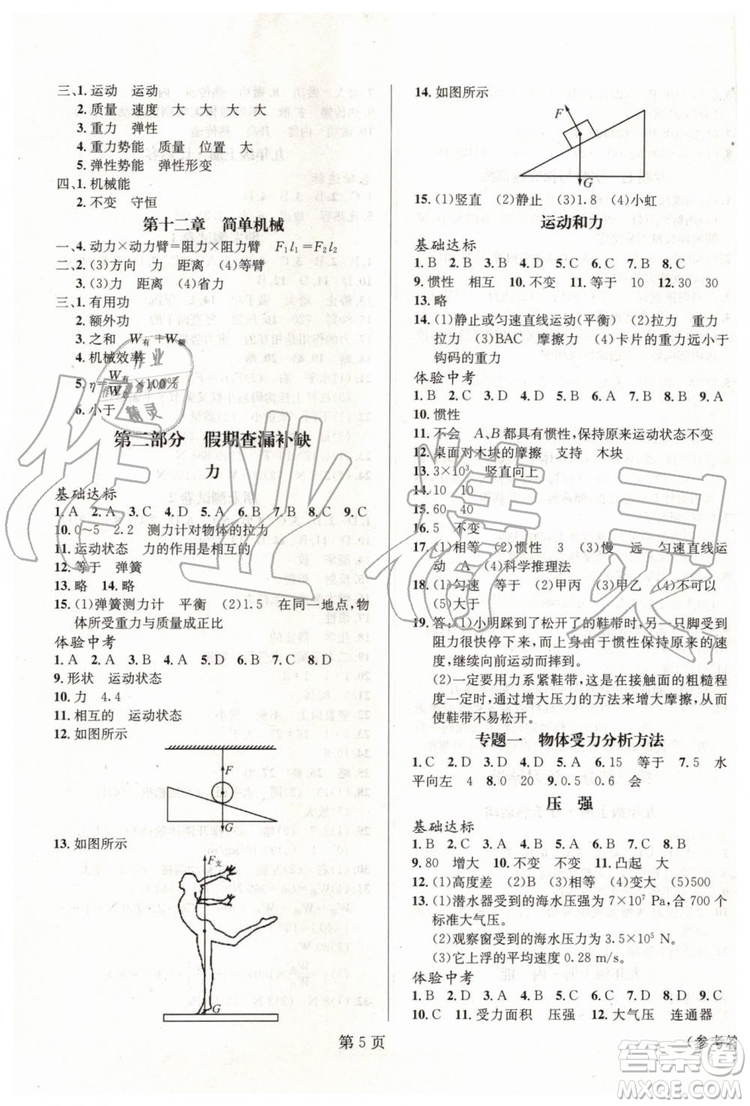 三、1.运动　运动
2.质量　速度　大　大　大　大
3.重力　弹性
4.重力势能　质量　位置　大
5.弹性势能　弹性形变
四、1.机械能
2.不变　守恒
第十二章　简单机械
一、4.动力×动力臂=阻力×阻力臂　F₁l₁=F₂l₂
二、2.(3)方向　力　距离　(4)等臂
3.(3)力　距离　(4)省力
三、1.有用功
2.额外功
3.之和　W有+W额
4.机械效率
5.η=W有/W总×100%
6.小于
第二部分　假期查漏补缺
力
基础达标
10.0～5　2.2　测力计对物体的拉力
11.运动状态　力的作用是相互的
12.等于　等于
13.略　14.略
15.(1)弹簧测力计　平衡　(2)1.5　在同一地点,物
体所受重力与质量成正比
体验中考
1.A　2.A　3.B　4.D　5.D　6.C　7.C　8.D
9.形状　运动状态
10.力　4.4
11.相互的　运动状态
12.如图所示
F
G
13.如图所示
F支
G
14.如图所示
F
G
15.(1)竖直　(2)静止　(3)1.8　(4)小虹
运动和力
基础达标
1.B　2.C　3.C　4.D　5.B　6.B　7.B　8.C
9.惯性　相互　10.不变　11.等于　10　12.30　30
13.略
14.(1)静止或匀速直线运动(平衡)　(2)拉力　重力
拉力　(3)BAC　摩擦力　(4)卡片的重力远小于
钩码的重力
体验中考
1.C　2.D　3.A　4.C　5.B　6.D　7.A　8.A　9.C
10.惯性
11.不会　A、B都具有惯性,保持原来运动状态不变
12.桌面对木块的摩擦　支持　木块
13.3×10³　竖直向上
14.10　10
15.60　40
16.5　不变
17.(1)相等　(2)惯性　(3)慢　远　匀速直线运动
(4)A　(5)科学推理法
18.(1)匀速　等于　(2)甲丙　(3)甲乙　(4)不需要
(5)大于
19.答:(1)小明踩到了松开了的鞋带时,另一只脚受到
阻力很快停下来,而上身由于惯性保持原来的速
度,继续向前运动而摔倒。
(2)一定要用力系紧鞋带,这是在接触面的粗糙
程度一定时,通过增大压力的方法来增大摩擦,以
使鞋带不易松开。
专题一　物体受力分析方法
1.B　2.C　3.B　4.A　5.A　6.等于　7.5　水
平向左　4　8.0　20　9.0.5　0.6　会
压　强
基础达标
1.C　2.C　3.B　4.B　5.D　6.B　7.A　8.C
9.80　增大　10.不变　不变　11.凸起　大
12.(1)高度差　(2)相等　(3)B　(4)增大　(5)500
13.(1)潜水器受到的海水压强为7×10⁷ Pa,合700个
标准大气压。
(2)观察窗受到的海水压力为3.5×10⁵ N。
(3)它上浮的平均速度0.28 m/s。
体验中考
1.B　2.D　3.A　4.C　5.A　6.C　7.C　8.D　9.B
10.C　11.受力面积　压强　12.大气压　连通器
第 5 页
(参考答